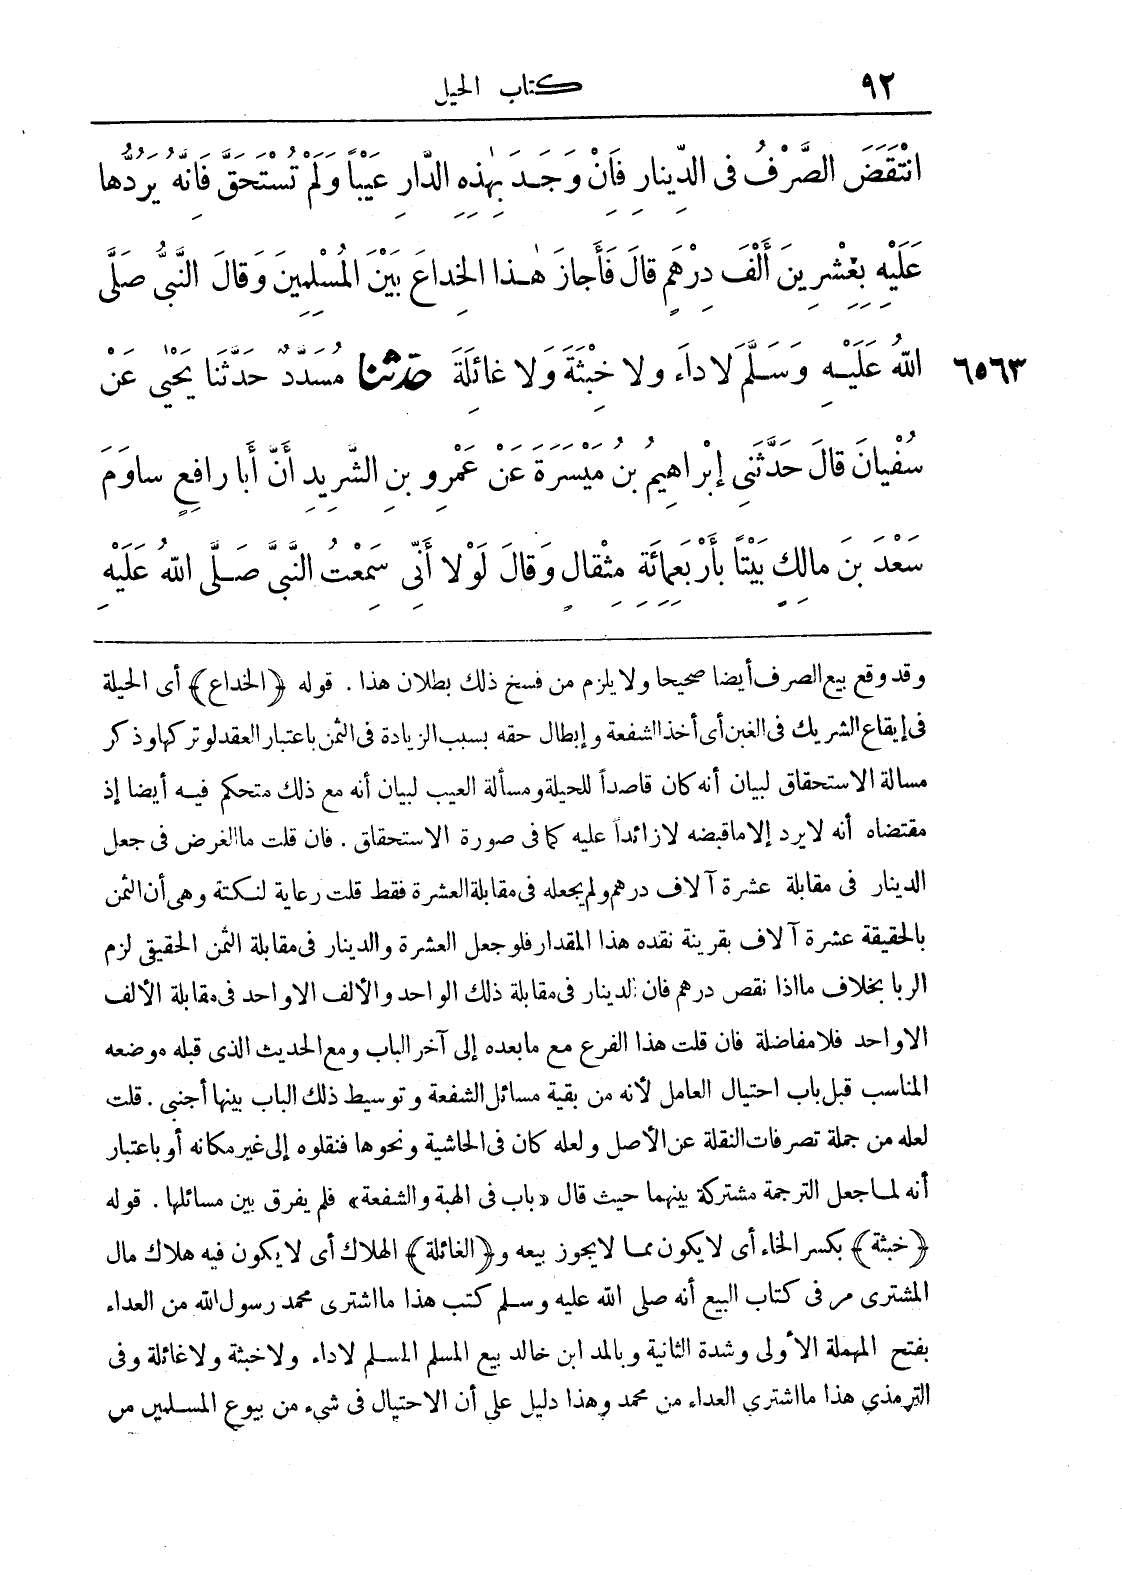 ٩٢ كتاب الحيل
انْتَقَضَ الصَّرْفُ فى الدِّينارِ فَإِنْ وَجَدَ بِهٰذِهِ الدَّارِ عَيْباً وَلَمْ تُسْتَحَقَّ فَانَّهُ يَرُدُّها
عَلَيْهِ بِعِشْرِينَ أَلْفَ دِرْهَمٍ قالَ فَأَجازَ هٰذا الخِداعَ بَيْنَ المُسْلِمِينَ وَقالَ النَّبِىُّ صَلَّى
اللهُ عَلَيْهِ وَسَلَّمَ لا داءَ ولا خِبْثَةَ وَلا غائِلَةَ حدثنا مُسَدَّدٌ حَدَّثَنا يَحْيٰى عَنْ ٦٥٦٣
سُفْيانَ قالَ حَدَّثَنِى إِبْراهِيمُ بنُ مَيْسَرَةَ عَنْ عَمْرِو بنِ الشَّرِيدِ أَنَّ أَبا رافِعٍ ساوَمَ
سَعْدَ بنَ مالِكٍ بَيْتًا بِأَرْبَعِمائَةِ مِثْقالٍ وَقالَ لَوْلا أَنِّى سَمِعْتُ النَّبِىَّ صَلَّى اللهُ عَلَيْهِ
وقد وقع بيع الصرف أيضا صحيحا ولا يلزم من فسخ ذلك بطلان هذا . قوله ﴿الخداع﴾ أى الحيلة
فى إيقاع الشريك فى الغبن أى أخذ الشفعة وإبطال حقه بسبب الزيادة فى الثمن باعتبار العقد لو تركها وذكر
مسالة الاستحقاق لبيان أنه كان قاصداً للحيلة ومسألة العيب لبيان أنه مع ذلك متحكم فيه أيضا إذ
مقتضاه أنه لا يرد إلا ما قبضه لا زائداً عليه كما فى صورة الاستحقاق . فان قلت ما الغرض فى جعل
الدينار فى مقابلة عشرة آلاف درهم ولم يجعله فى مقابلة العشرة فقط قلت رعاية لنكتة وهى أن الثمن
بالحقيقة عشرة آلاف بقرينة نقده هذا المقدار فلو جعل العشرة والدينار فى مقابلة الثمن الحقيقى لزم
الربا بخلاف ما اذا نقص درهم فان الدينار فى مقابلة ذلك الواحد والألف الا واحد فى مقابلة الألف
الا واحد فلا مفاضلة فان قلت هذا الفرع مع ما بعده إلى آخر الباب ومع الحديث الذى قبله موضعه
المناسب قبل باب احتيال العامل لأنه من بقية مسائل الشفعة وتوسيط ذلك الباب بينها أجنبى . قلت
لعله من جملة تصرفات النقلة عن الأصل ولعله كان فى الحاشية ونحوها فنقلوه إلى غير مكانه أو باعتبار
أنه لما جعل الترجمة مشتركة بينهما حيث قال «باب فى الهبة والشفعة» فلم يفرق بين مسائلها . قوله
﴿خبثة﴾ بكسر الخاء أى لا يكون مما لا يجوز بيعه و﴿الغائلة﴾ الهلاك أى لا يكون فيه هلاك مال
المشترى مر فى كتاب البيع أنه صلى الله عليه وسلم كتب هذا ما اشترى محمد رسول الله من العداء
بفتح المهملة الأولى وشدة الثانية وبالمد ابن خالد بيع المسلم المسلم لاداء ولا خبثة ولا غائلة وفى
الترمذي هذا ما اشتري العداء من محمد وهذا دليل على أن الاحتيال فى شيء من بيوع المسلمين من